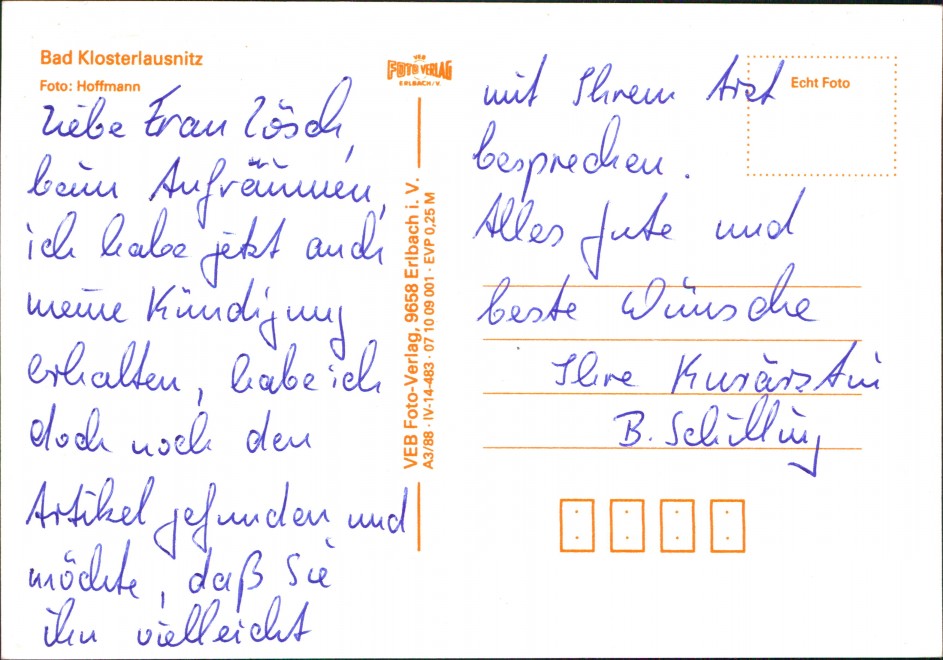 Bad Klosterlausnitz
Foto: Hoffmann
Liebe Frau Lösch,
beim Aufräumen,
ich habe jetzt auch
meine Kündigung
erhalten, habe ich
doch noch den
Artikel gefunden und
möchte, daß Sie
ihn vielleicht
VEB
FOTO VERLAG
ERLBACH/V.
VEB Foto-Verlag, 9658 Erlbach i. V.
A3/88 · IV-14-483 · 07 10 09 001 · EVP 0,25 M
Echt Foto
mit Ihrem Arzt
besprechen.
Alles Gute und
beste Wünsche
Ihre Kurärztin
B. Schilling